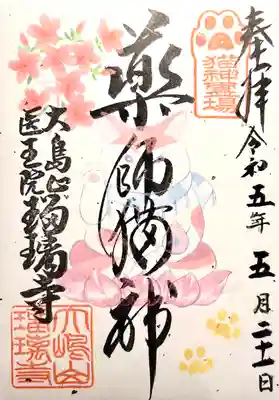 奉拝
猫神霊場
令和五年五月二十一日
薬師猫神
大島山
医王院
瑠璃寺
大嶋山
瑠璃寺